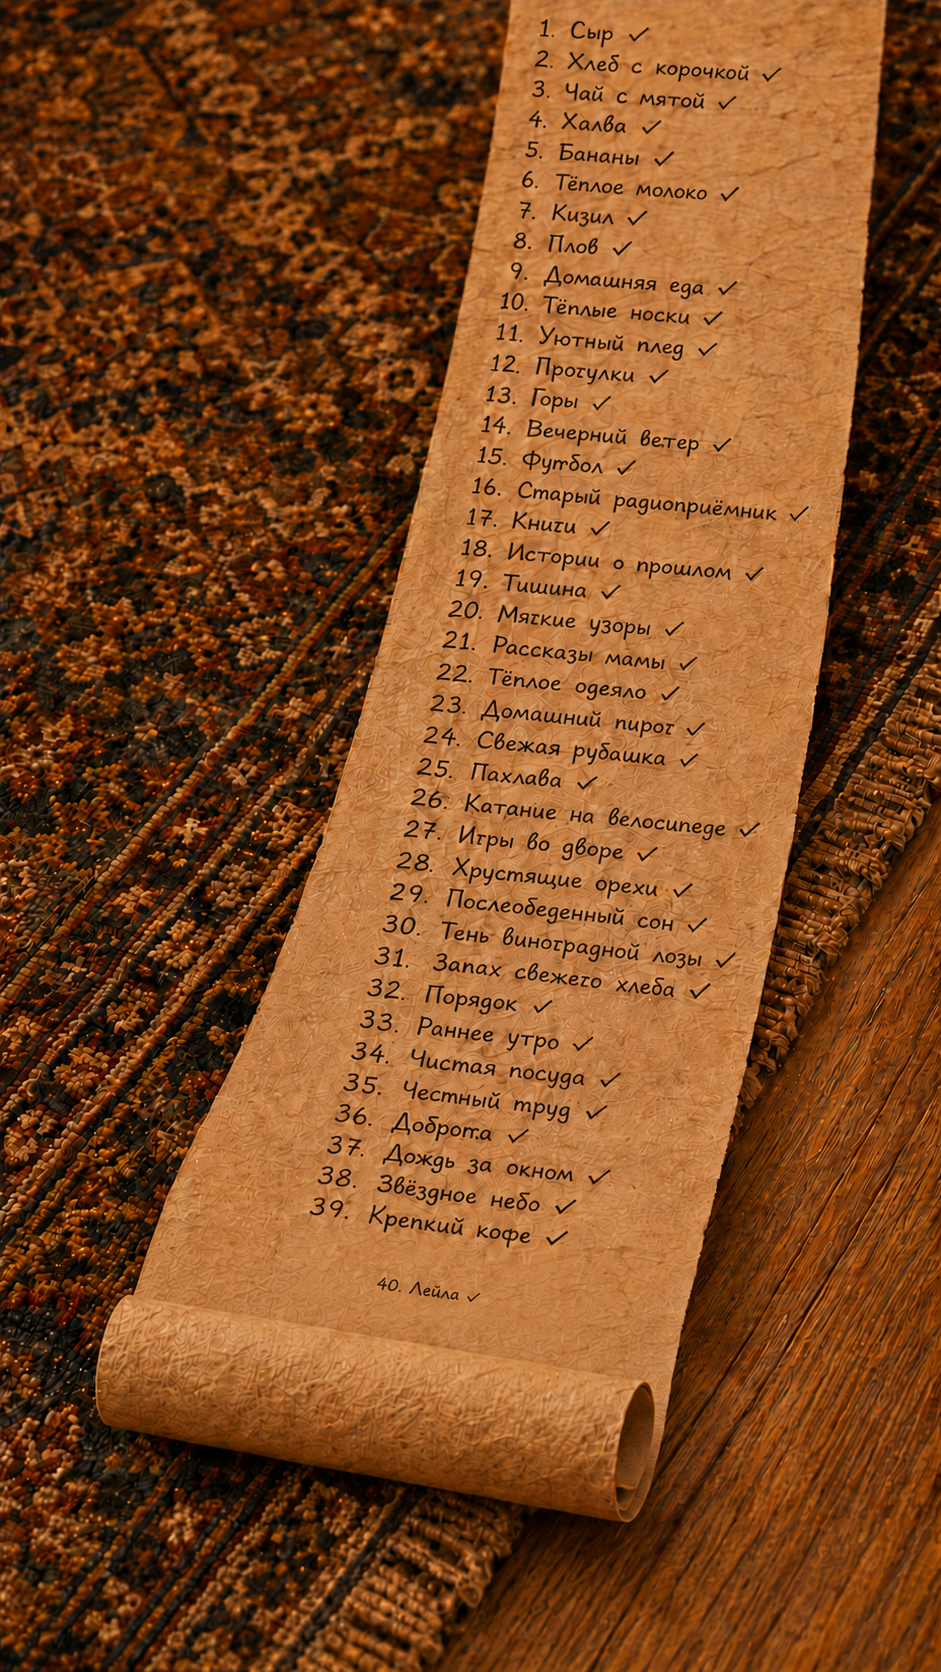 1. Сыр ✓
2. Хлеб с корочкой ✓
3. Чай с мятой ✓
4. Халва ✓
5. Бананы ✓
6. Тёплое молоко ✓
7. Кизил ✓
8. Плов ✓
9. Домашняя еда ✓
10. Тёплые носки ✓
11. Уютный плед ✓
12. Прогулки ✓
13. Горы ✓
14. Вечерний ветер ✓
15. Футбол ✓
16. Старый радиоприёмник ✓
17. Книги ✓
18. Истории о прошлом ✓
19. Тишина ✓
20. Мягкие узоры ✓
21. Рассказы мамы ✓
22. Тёплое одеяло ✓
23. Домашний пирог ✓
24. Свежая рубашка ✓
25. Пахлава ✓
26. Катание на велосипеде ✓
27. Игры во дворе ✓
28. Хрустящие орехи ✓
29. Послеобеденный сон ✓
30. Тень виноградной лозы ✓
31. Запах свежего хлеба ✓
32. Порядок ✓
33. Раннее утро ✓
34. Чистая посуда ✓
35. Честный труд ✓
36. Доброта ✓
37. Дождь за окном ✓
38. Звёздное небо ✓
39. Крепкий кофе ✓
40. Лейла ✓